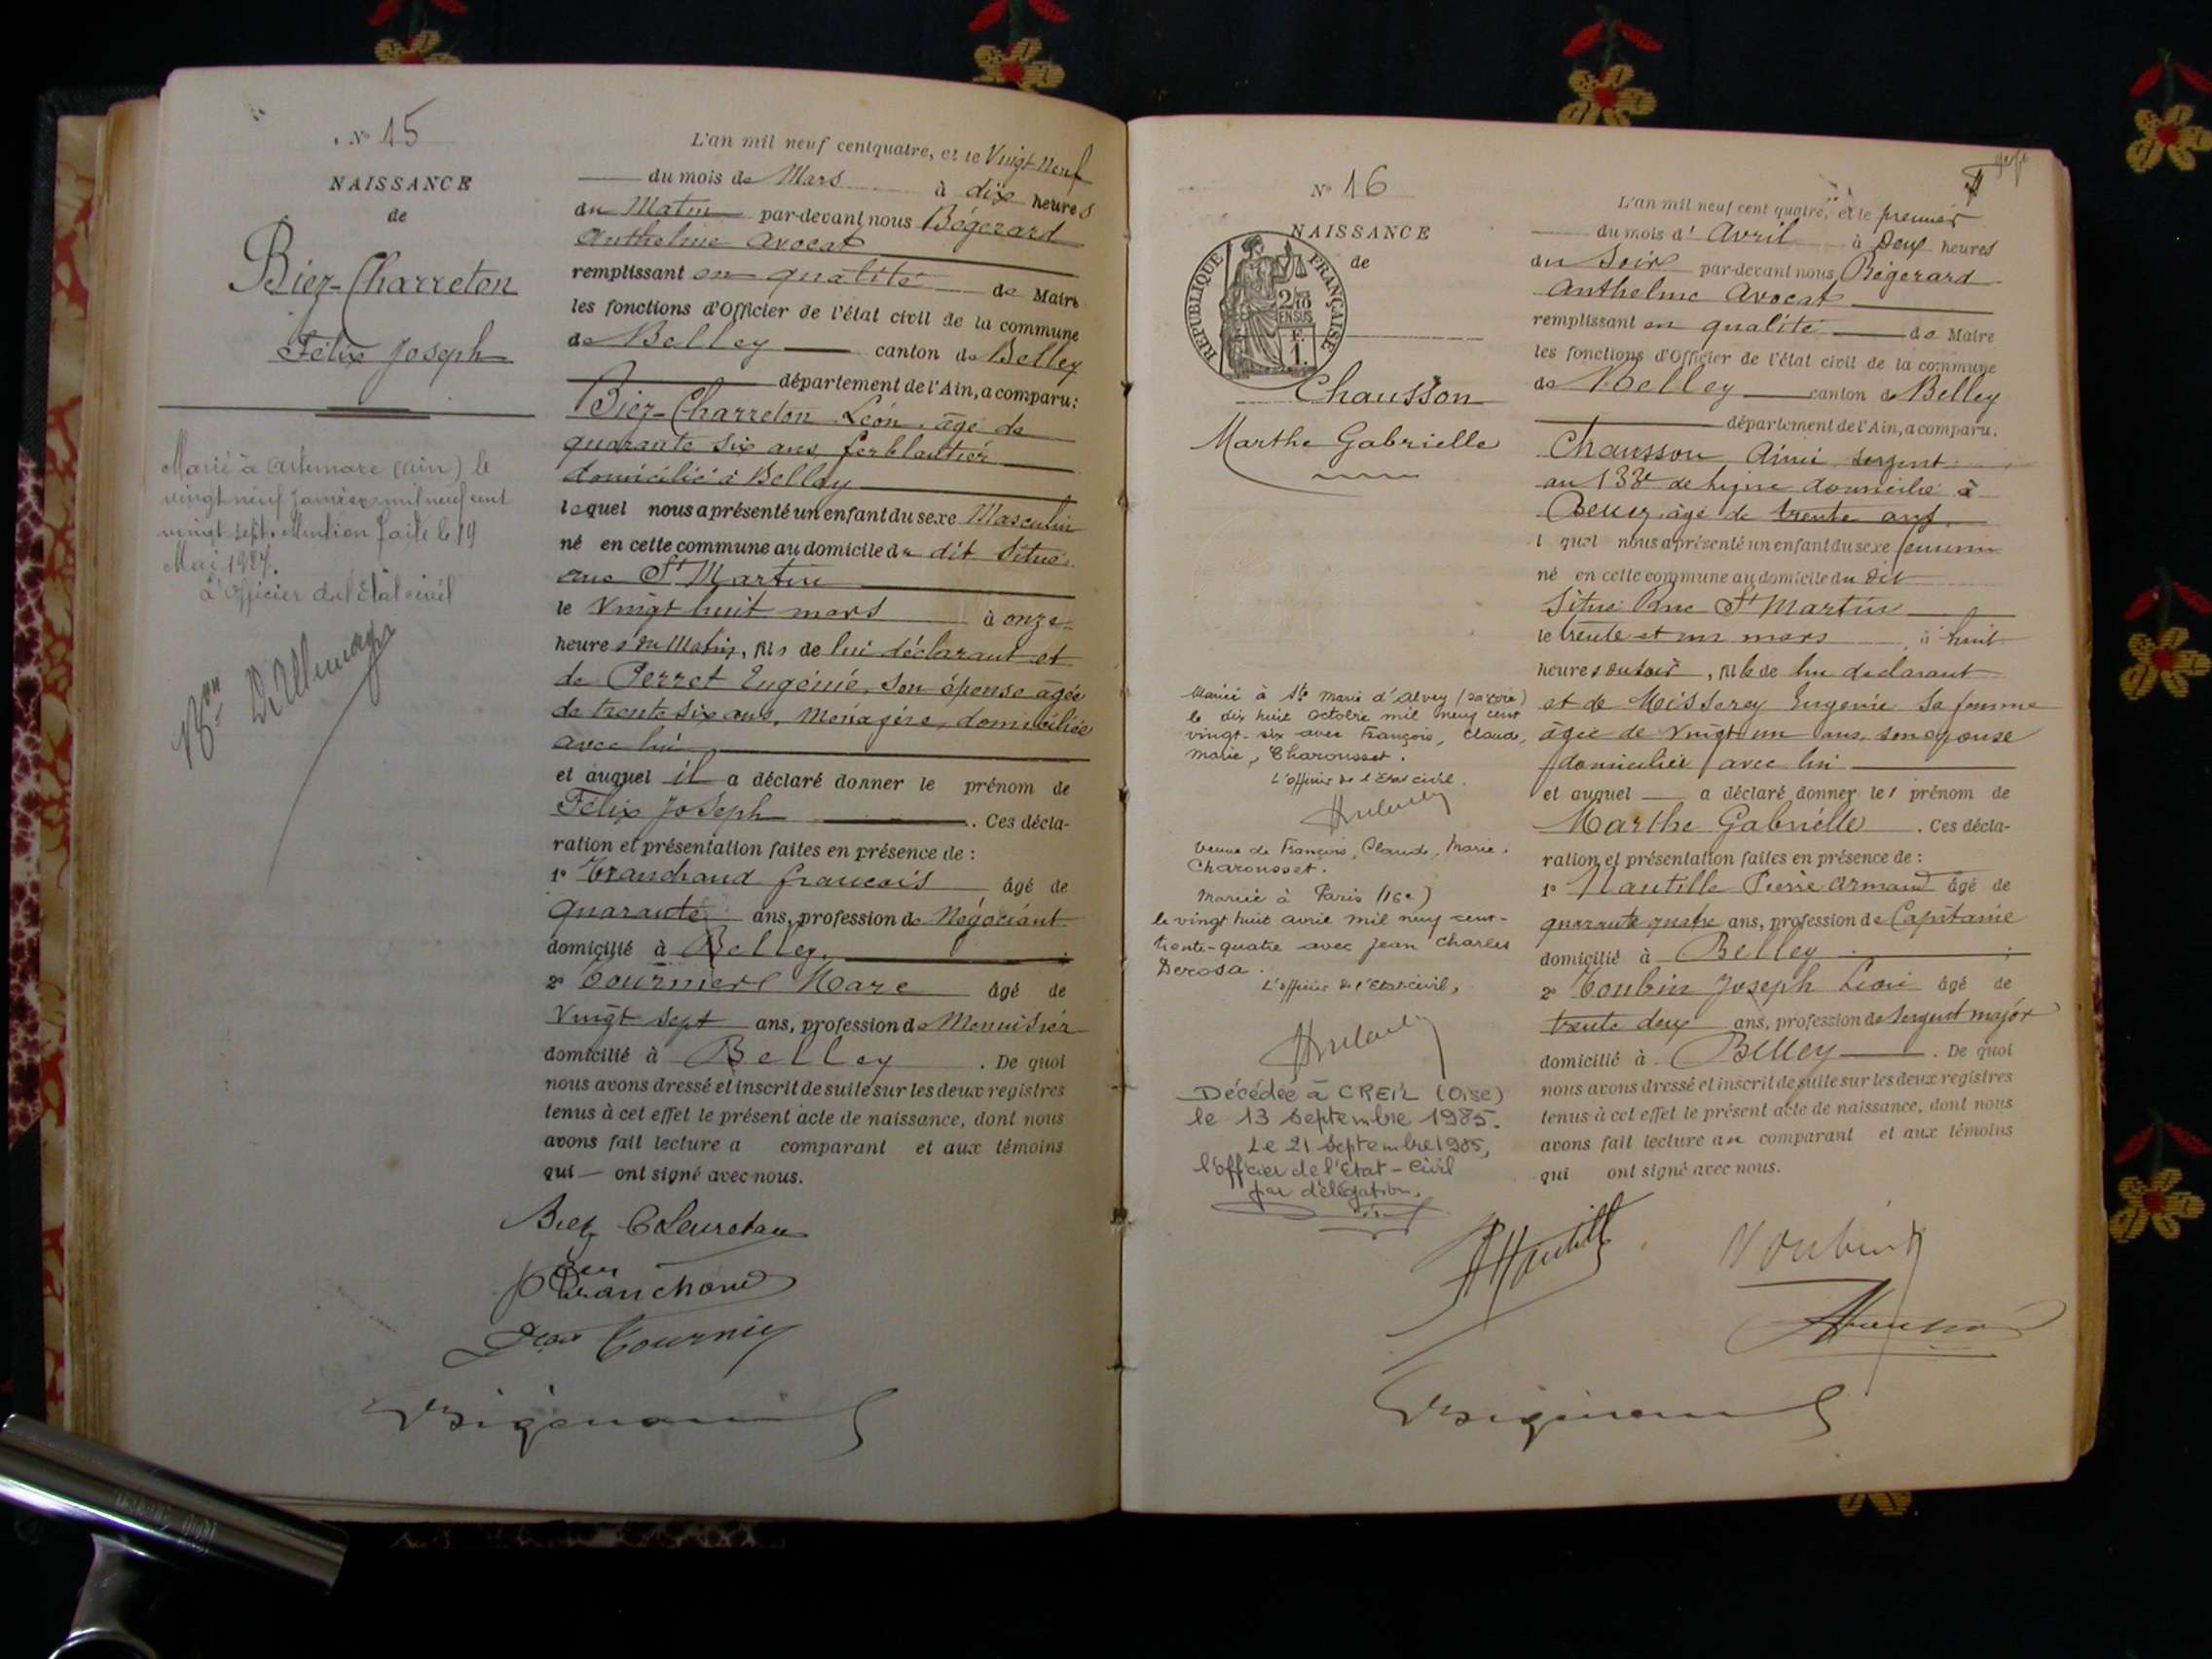 Nº 15
NAISSANCE
de
Biez-Charreton
Félix Joseph
Marié à Artemare (ain) le
vingt neuf janvier mil neuf cent
vingt sept. Mention faite le 19
Mai 1927.
L'officier de l'Etat civil
L'an mil neuf cent quatre, et le Vingt Neuf
du mois de Mars à dix heures
du Matin par-devant nous Bégerard
Anthelme Avocat
remplissant en qualité de Maire
les fonctions d'Officier de l'état civil de la commune
de Belley canton de Belley
département de l'Ain, a comparu:
Biez-Charreton Léon. âgé de
quarante six ans, ferblantier
domicilié à Belley
lequel nous a présenté un enfant du sexe Masculin
né en cette commune au domicile du dit Situé
rue St Martin
le Vingt huit mars à onze
heures du Matin, fils de lui déclarant et
de Perret Eugénie, son épouse âgée
de trente six ans, Ménagère, domiciliée
avec lui
et auquel il a déclaré donner le prénom de
Félix Joseph. Ces décla-
ration et présentation faites en présence de :
1º Tranchand francois âgé de
Quarante ans, profession de Négociant
domicilié à Belley.
2º Tournier Marc âgé de
Vingt sept ans, profession de Menuisier
domicilié à Belley. De quoi
nous avons dressé et inscrit de suite sur les deux registres
tenus à cet effet le présent acte de naissance, dont nous
avons fait lecture a comparant et aux témoins
qui ont signé avec nous.
Biez Charreton
Tranchand
Tournier
Nº 16
NAISSANCE
de
REPUBLIQUE FRANÇAISE
2/10
EN SUS
F.
1.
Chausson
Marthe Gabrielle
Mariée à Ste Marie d'Alvey (Savoie)
le dix huit octobre mil neuf cent
vingt-six avec François, Claude,
Marie, Charousset.
L'officier de l'Etat civil.
Veuve de François, Claude, Marie,
Charousset.
Mariée à Paris (16e)
le vingt huit avril mil neuf cent-
trente-quatre avec Jean Charles
Derosa.
L'officier de l'Etat civil,
Décédée à CREIL (Oise)
le 13 Septembre 1985.
Le 21 Septembre 1985,
l'officier de l'Etat-Civil
par délégation.
L'an mil neuf cent quatre, et le premier
du mois d' Avril à Deux heures
du Soir par-devant nous, Bégerard
Anthelme Avocat
remplissant en qualité de Maire
les fonctions d'Officier de l'état civil de la commune
de Belley canton de Belley
département de l'Ain, a comparu.
Chausson Aimé sergent
au 133e de ligne domicilié à
Belley, âgé de trente ans.
l quel nous a présenté un enfant du sexe féminin
né en cette commune au domicile du dit
Situé Rue St Martin
le trente et un mars à huit
heures du soir, fille de lui declarant
et de Misserey Eugénie sa femme
âgée de Vingt un ans, son epouse
domiciliée avec lui
et auquel a déclaré donner les prénom de
Marthe Gabrielle. Ces décla-
ration et présentation faites en présence de :
1º Nautille Pierre Armand âgé de
quarante quatre ans, profession de Capitaine
domicilié à Belley
2º Toubin Joseph Léon âgé de
trente deux ans, profession de Sergent major
domicilié à Belley. De quoi
nous avons dressé et inscrit de suite sur les deux registres
tenus à cet effet le présent acte de naissance, dont nous
avons fait lecture au comparant et aux témoins
qui ont signé avec nous.